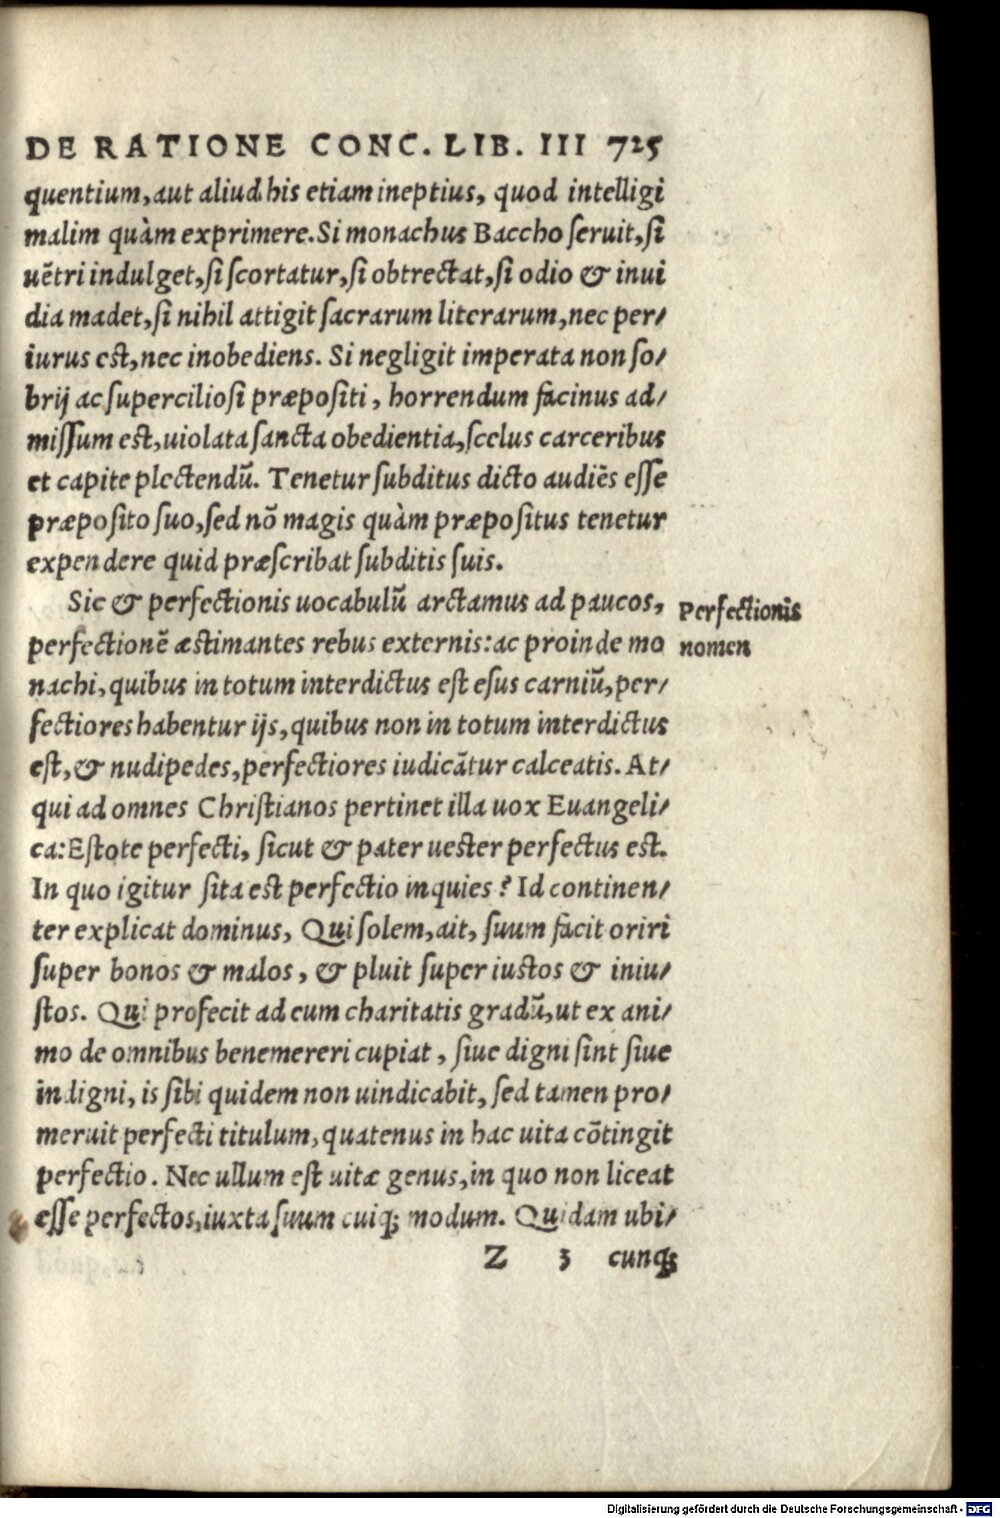 DE RATIONE CONC. LIB. III 725
quentium, aut aliud his etiam ineptius, quod intelligi
malim quàm exprimere. Si monachus Baccho seruit, si
uẽtri indulget, si scortatur, si obtrectat, si odio & inui
dia madet, si nihil attigit sacrarum literarum, nec per/
iurus est, nec inobediens. Si negligit imperata non so/
brij ac superciliosi præpositi, horrendum facinus ad/
missum est, uiolata sancta obedientia, scelus carceribus
et capite plectendũ. Tenetur subditus dicto audiẽs esse
præposito suo, sed nõ magis quàm præpositus tenetur
expendere quid præscribat subditis suis.
Sic & perfectionis uocabulũ arctamus ad paucos,
Perfectionis
perfectionẽ æstimantes rebus externis: ac proinde mo
nomen
nachi, quibus in totum interdictus est esus carniũ, per/
fectiores habentur ijs, quibus non in totum interdictus
est, & nudipedes, perfectiores iudicãtur calceatis. At/
qui ad omnes Christianos pertinet illa uox Euangeli/
ca: Estote perfecti, sicut & pater uester perfectus est.
In quo igitur sita est perfectio inquies? Id continen/
ter explicat dominus, Qui solem, ait, suum facit oriri
super bonos & malos, & pluit super iustos & iniu/
stos. Qui profecit ad eum charitatis gradũ, ut ex ani/
mo de omnibus benemereri cupiat, siue digni sint siue
indigni, is sibi quidem non uindicabit, sed tamen pro/
meruit perfecti titulum, quatenus in hac uita cõtingit
perfectio. Nec ullum est uitæ genus, in quo non liceat
esse perfectos, iuxta suum cuiq; modum. Quidam ubi/
Z 3 cunq;
Digitalisierung gefördert durch die Deutsche Forschungsgemeinschaft - DFG